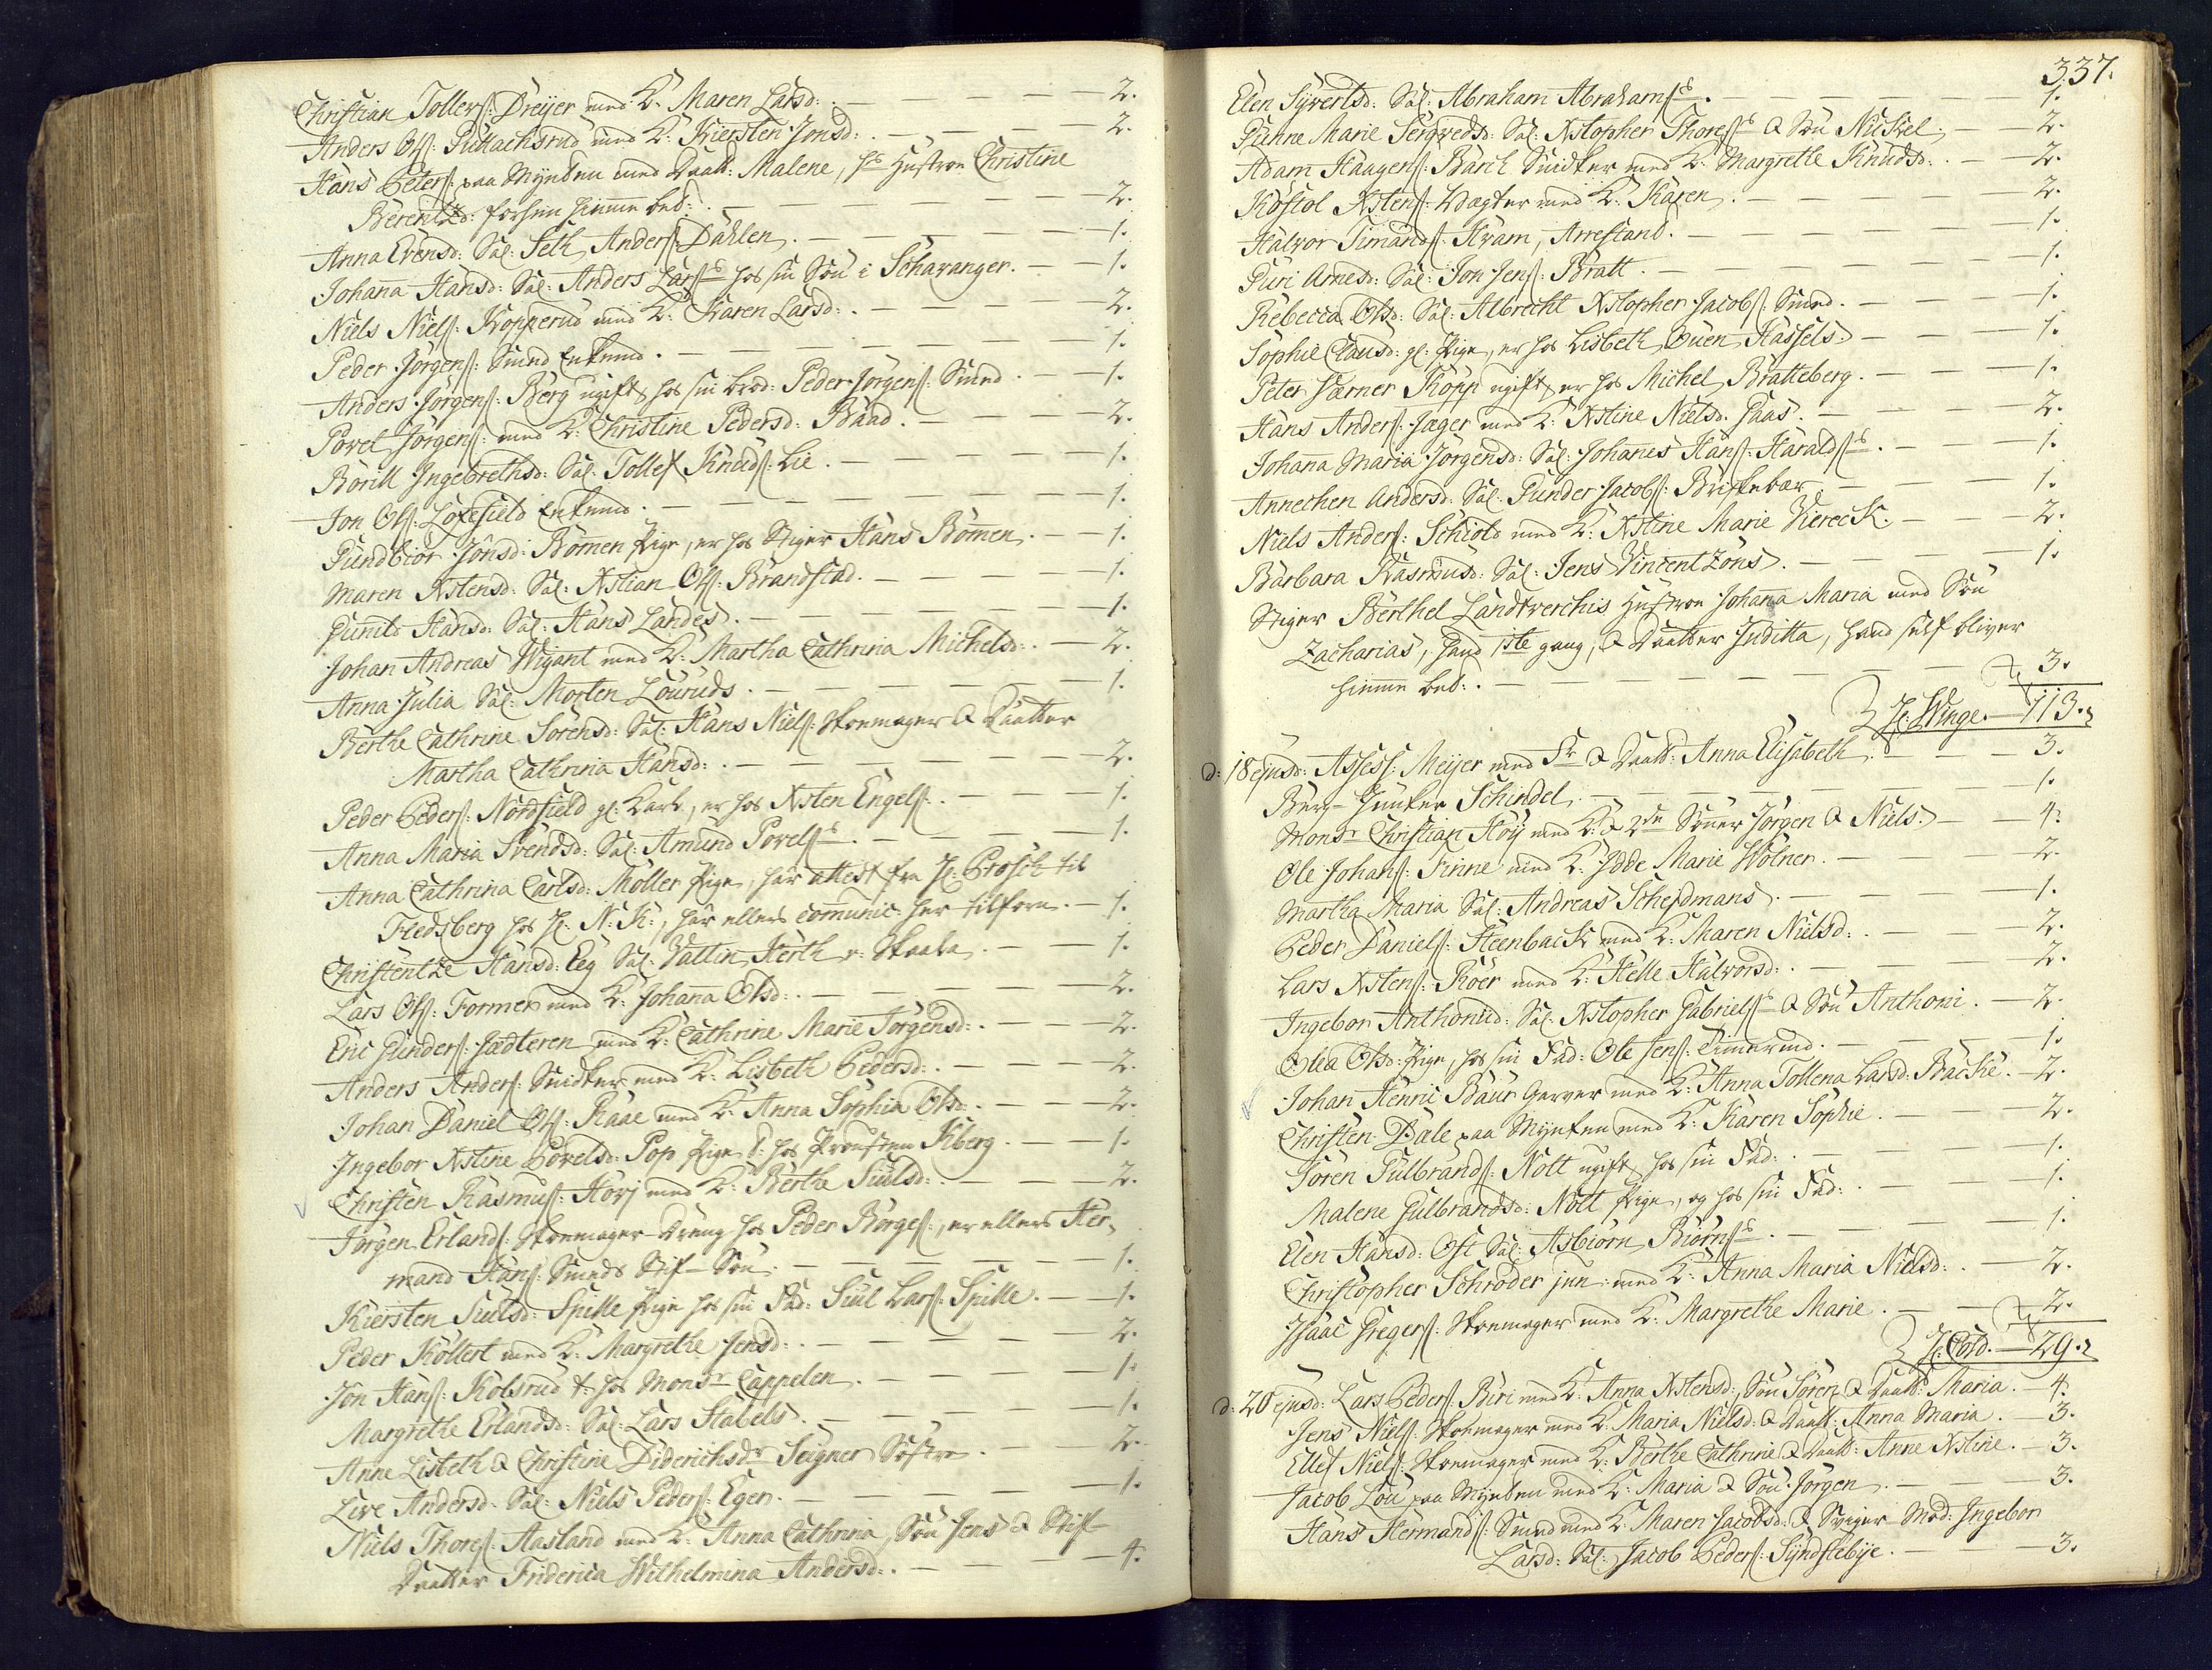 Christian Tollefs: Dreijer med K: Maren Larsd: — 2.
Anders Ols: Pukachsrud med K: Kiersten Jonsd: — 2.
Hans Peters: paa Mynten med Daatt: Malene, hs Hustroe Christine
Berentzd: forhen hiemme bet: — 2.
Anna Evensd: Sal: Seth Anders: Dahlen. — 1.
Johanna Hansd: Sal: Anders Lars: hos sin Søn i Schavanger. — 1.
Niels Niels: Kopperud med K: Karen Larsd: — 2.
Peder Jørgens: Smed Enkem: — 1.
Anders Jørgens: Berg ugift, hos sin brod: Peder Jørgens: Smed — 1.
Povel Jørgens: med K: Christine Pedersd: Baad. — 2.
Borill Ingebrethsd: Sal: Tollef Knuds: Lie. — 1.
Jon Ols: Løxefield Enkem: — 1.
Gundbior Jonsd: Bømen Pige, er hos Stiger Hans Bømen. — 1.
Maren Xstensd: Sal: Xstian Ols: Brandstad. — 1.
Gunild Hansd: Sal: Hans Landes. — 1.
Johan Andreas Wigant med K: Martha Cathrina Michelsd: — 2.
Anna Julia Sal: Morten Louruds. — 1.
Berthe Cathrine Sørensd: Sal: Hans Niels: Skoemager & Daatter
Martha Cathrina Hansd: — 2.
Peder Peders: Nordfield gl: Karl, er hos Xsten Engels: — 1.
Anna Maria Svendsd: Sal: Amund Povels: — 1.
Anna Cathrina Carlsd: Møller Pige, har attest fra H: Prosch til
Fredsberg hos H: N. K:, har ellers comunic: her tilforn. — 1.
Christentze Hansd: Eeg Sal: Vallin Herth — 1.
Lars Ols: Former med K: Johanna Olsd: — 2.
Eric Gunders: Jædteren med K: Cathrine Marie Jørgensd: — 2.
Anders Anders: Snidker med K: Lisbeth Pedersd: — 2.
Johan Daniel Ols: Raae med K: Anna Sophia Olsd: — 2.
Ingebor Xstine Povelsd: Pop Pige t: hos Prousten Kberg. — 1.
Christen Rasmus: Horj med K: Berthe Siulsd: — 2.
Jørgen Erlands: Skoemager Dreng hos Peder Børges:, er ellers Her-
mand Hans: Smeds Stif-Søn. — 1.
Kiersten Siulsd: Spille Pige hos sin Fad: Siul Lars: Spille. — 1.
Peder Kollert med K: Margrethe Jensd: — 2.
Jon Hans: Kolsrud t: hos Monsr Cappelen. — 1.
Margrethe Erlandsd: Sal: Lars Stabels. — 1.
Anne Lisbeth & Christine Diderichsdr Seigner Søstre. — 2.
Live Andersd: Sal: Niels Peders: Egen. — 1.
Niels Thores: Aasland med K: Anna Cathrina, Søn Jens & Stif-
Daatter Friderica Wilhelmina Andersd: — 4.
337.
Elen Syvertsd: Sal: Abraham Abrahams: — 1.
Gunne Marie Serqvedsd: Sal: Xstopher Thores: & Søn Nickel. — 2.
Adam Haagens: Barth Snidker med K: Margrethe Knudsd: — 2.
Kostol Xstens: Vægter med K: Karen. — 2.
Halvor Simands: Kram, Arrestand. — 1.
Guri Arnesd: Sal: Jon Jens: Bratt. — 1.
Rebecca Olsd: Sal: Albrecht Xstopher Jacobs: Smed. — 1.
Sophie Clausd: gl: Pige, er hos Lisbeth Ouen Hassels. — 1.
Peter Karner Kopp ugift, er hos Michel Bratteberg. — 1.
Hans Anders: Jæger med K: Xstine Nielsd: Paas. — 2.
Johanna Maria Jørgensd: Sal: Johanes Hans: Haralds: — 1.
Annechen Andersd: Sal: Gunder Jacobs: Briskebær. — 1.
Niels Anders: Schiold med K: Xstine Marie Viereck. — 2.
Barbara Rasmusd: Sal: Jens Vincentzøns. — 1.
Stiger Berthel Landtverchis Hustroe Johanna Maria med Søn
Zacharias, hand 1ste gang, & Daatter Juditta, hand self bliver
hiemme bet: — 3.
H: Winge. — 113.
d: 18 ejusd: Assess: Meijer med Fr & Daatt: Anna Elisabeth. — 3.
Berg-Junker Schindel. — 1.
Monsr Christian Høij med K: & 2de Sønner Jørgen & Niels. — 4.
Ole Johans: Finne med K: Idde Marie Wølner. — 2.
Martha Maria Sal: Andreas Scheidmans. — 1.
Peder Daniels: Steenback med K: Maren Nielsd: — 2.
Lars Xstens: Roer med K: Helle Halvorsd: — 2.
Ingebor Anthonisd: Sal: Xstopher Gabriels: & Søn Anthoni. — 2.
Olia Olsd: Pige, hos sin Fad: Ole Jens: Timermd. — 1.
Johan Henric Baur Garver med K: Anna Tollena Larsd: Backe. — 2.
Christen Dale paa Mynten med K: Karen Sophie. — 2.
Søren Gulbrands: Nott ugift, hos sin Fad: — 1.
Malene Gulbrandsd: Nott Pige, og hos sin Fad: — 1.
Elen Hansd: Oft Sal: Asbiørn Biørns: — 1.
Christopher Schrøder jun: med K: Anna Maria Nielsd: — 2.
Isaac Gregers: Skoemager med K: Margrethe Marie. — 2.
H: Cold. — 29.
d: 20 ejusd: Lars Peders: Biri med K: Anna Xstensd:, Søn Søren & Daatt: Maria. — 4.
Jens Niels: Skoemager med K: Maria Nielsd: & Daatt: Anna Maria. — 3.
Ellef Niels: Skoemager med K: Berthe Cathrine & Daatt: Anne Xstine. — 3.
Jacob Lou paa Mynten med K: Maria & Søn Jørgen. — 3.
Hans Hermands: Smed med K: Maren Jacobsd: & Sviger-Mod: Ingebor
Larsd: Sal: Jacob Peders: Syndstebye. — 3.